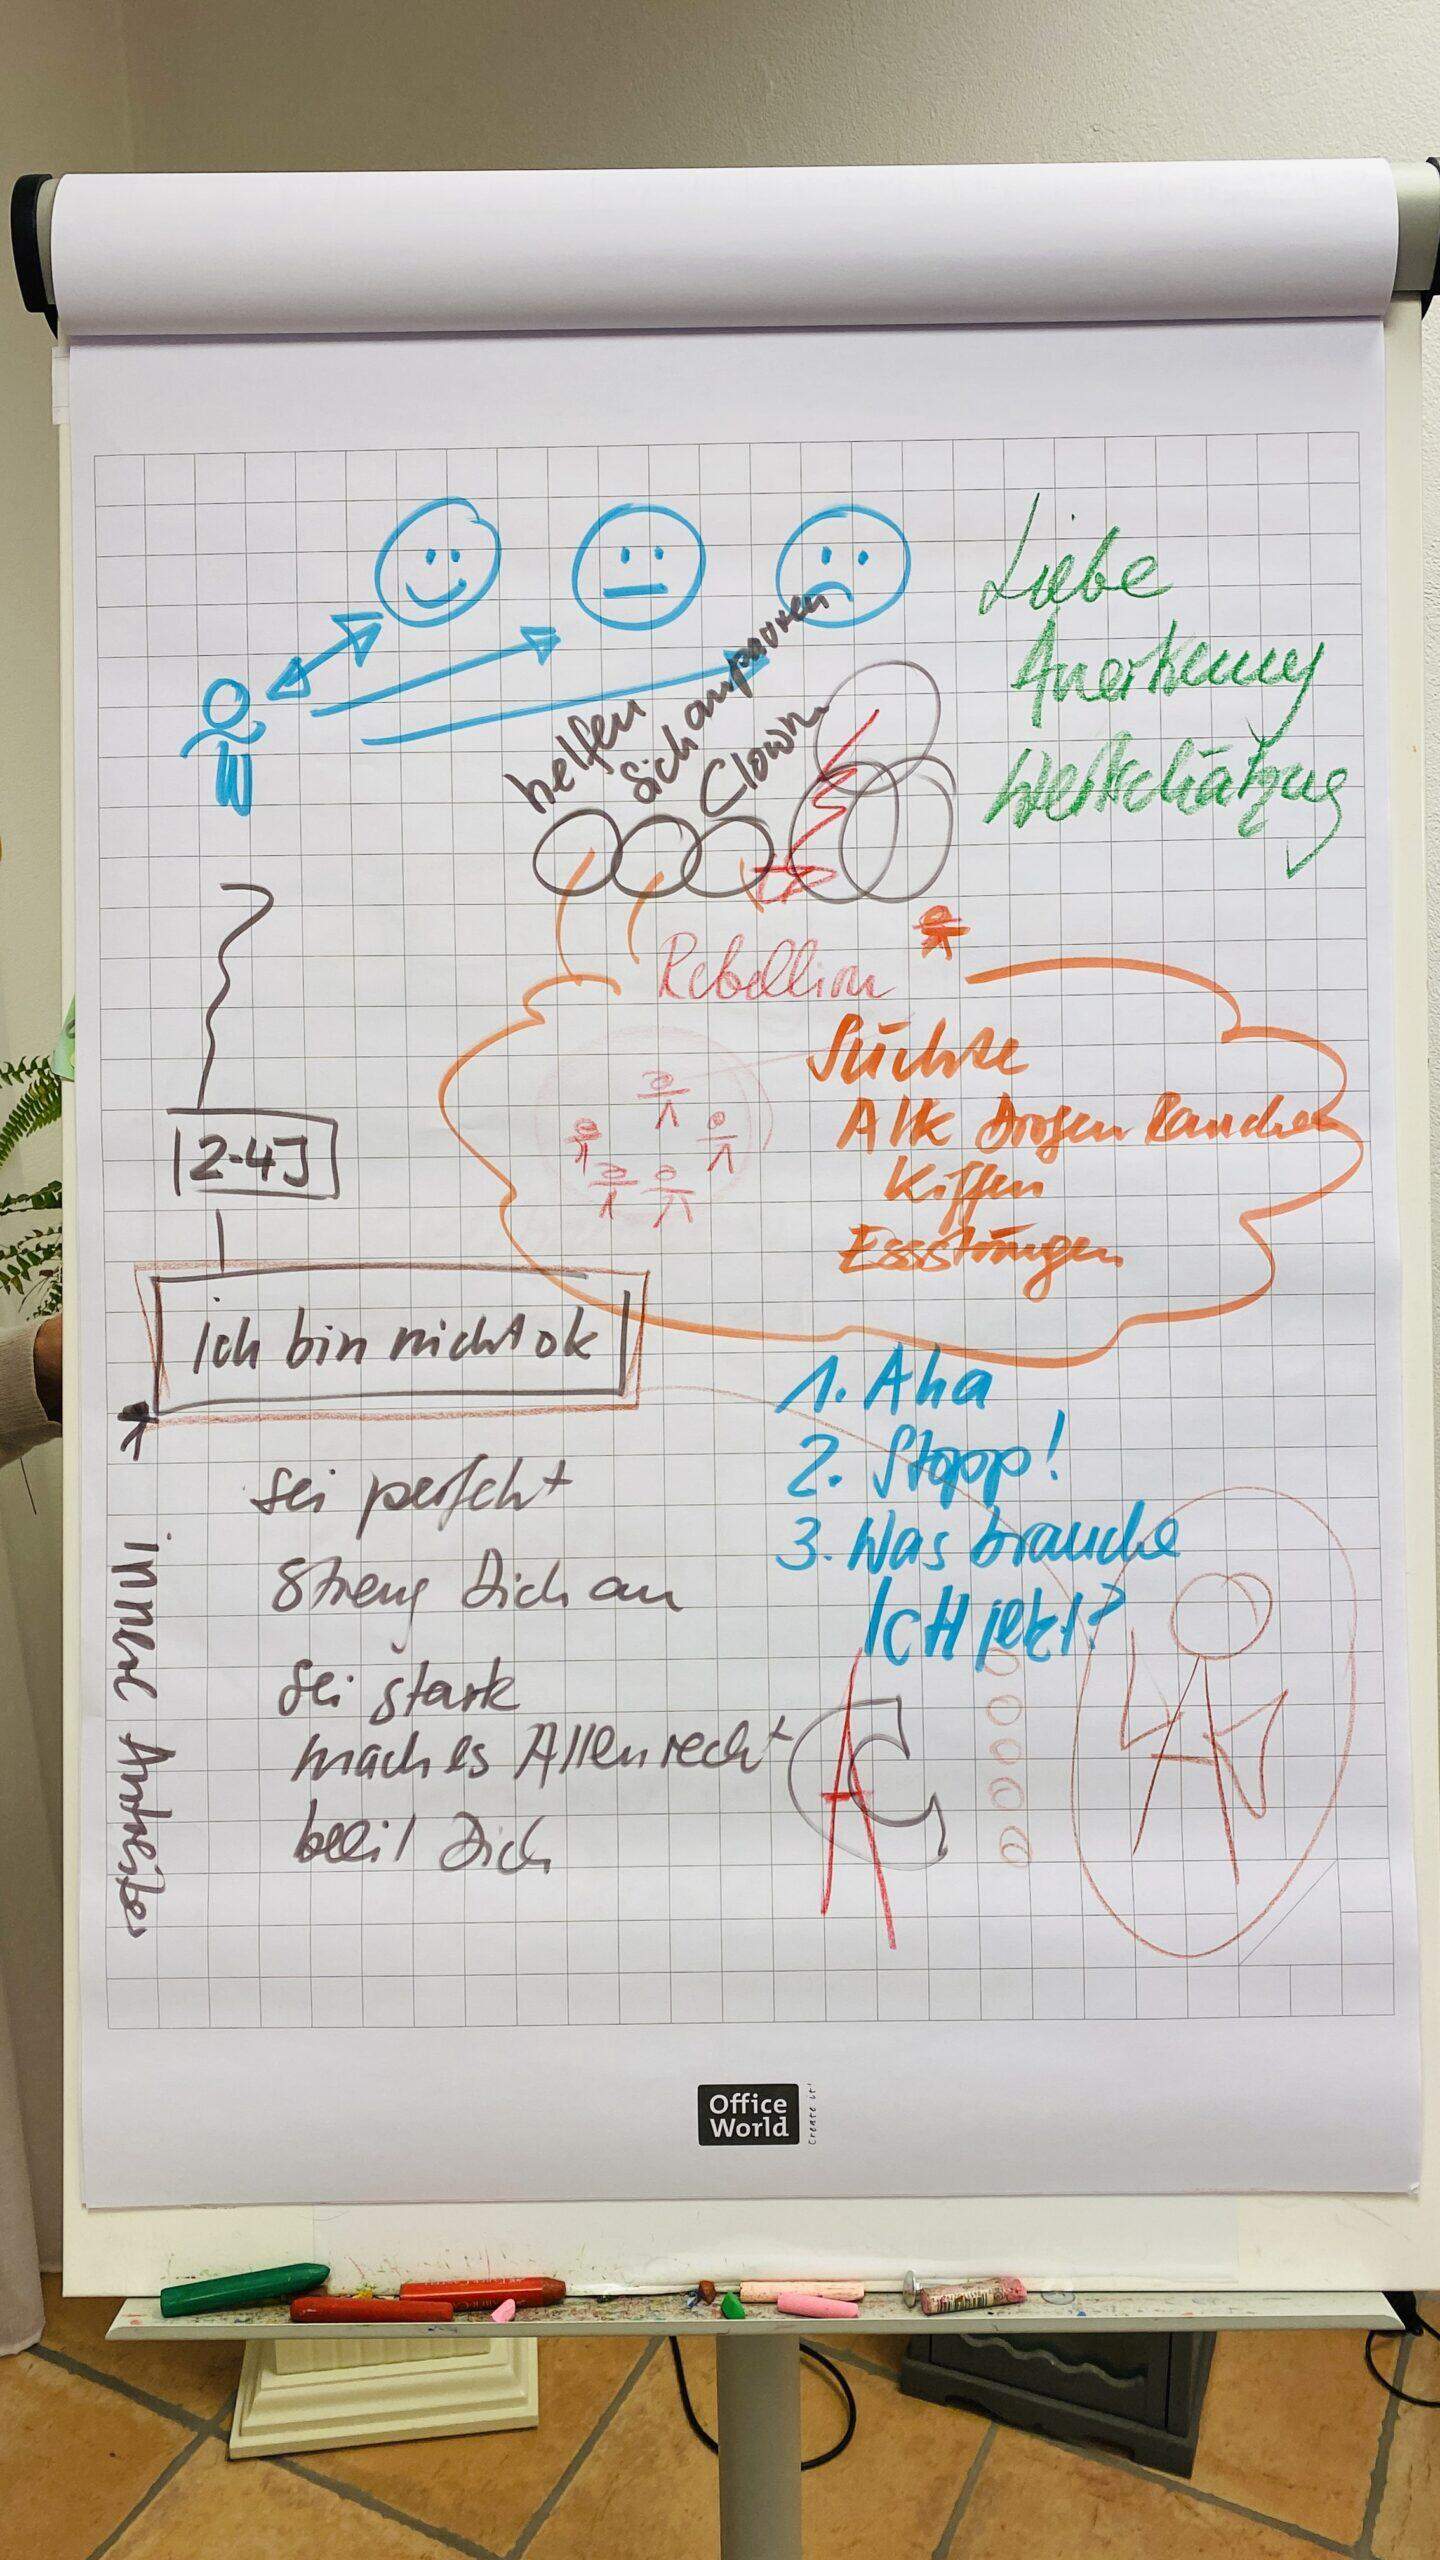 Liebe
Anerkennung
Wertschätzung
helfen
sich anpassen
Clown
Rebellion
Süchte
Alk Drogen Rauchen
Kiffen
Essstörungen
2-4J
ich bin nicht ok
1. Aha
2. Stopp!
3. Was brauche
ICH jetzt?
innere Antreiber
sei perfekt
streng Dich an
sei stark
mach es Allen recht
beeil Dich
Office
World
Create it!